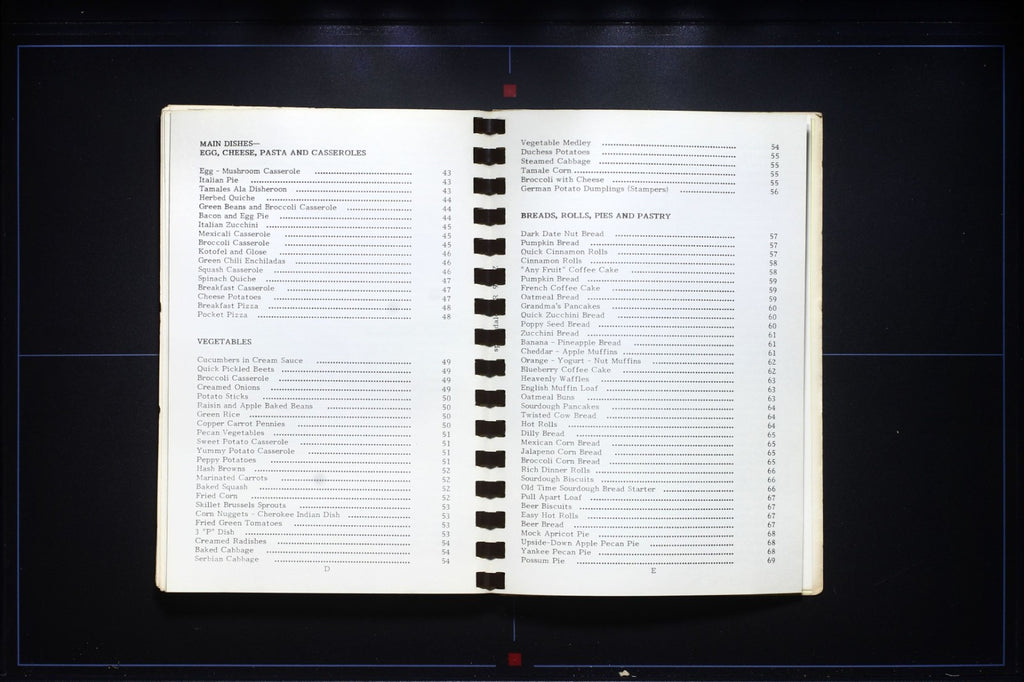 MAIN DISHES—
EGG, CHEESE, PASTA AND CASSEROLES
Egg - Mushroom Casserole .......... 43
Italian Pie .......... 43
Tamales Ala Disheroon .......... 43
Herbed Quiche .......... 44
Green Beans and Broccoli Casserole .......... 44
Bacon and Egg Pie .......... 44
Italian Zucchini .......... 45
Mexicali Casserole .......... 45
Broccoli Casserole .......... 45
Kotofel and Glose .......... 46
Green Chili Enchiladas .......... 46
Squash Casserole .......... 46
Spinach Quiche .......... 47
Breakfast Casserole .......... 47
Cheese Potatoes .......... 47
Breakfast Pizza .......... 48
Pocket Pizza .......... 48
VEGETABLES
Cucumbers in Cream Sauce .......... 49
Quick Pickled Beets .......... 49
Broccoli Casserole .......... 49
Creamed Onions .......... 49
Potato Sticks .......... 50
Raisin and Apple Baked Beans .......... 50
Green Rice .......... 50
Copper Carrot Pennies .......... 50
Pecan Vegetables .......... 51
Sweet Potato Casserole .......... 51
Yummy Potato Casserole .......... 51
Peppy Potatoes .......... 51
Hash Browns .......... 52
Marinated Carrots .......... 52
Baked Squash .......... 52
Fried Corn .......... 52
Skillet Brussels Sprouts .......... 53
Corn Nuggets - Cherokee Indian Dish .......... 53
Fried Green Tomatoes .......... 53
3 "P" Dish .......... 53
Creamed Radishes .......... 54
Baked Cabbage .......... 54
Serbian Cabbage .......... 54
D
Vegetable Medley .......... 54
Duchess Potatoes .......... 55
Steamed Cabbage .......... 55
Tamale Corn .......... 55
Broccoli with Cheese .......... 55
German Potato Dumplings (Stampers) .......... 56
BREADS, ROLLS, PIES AND PASTRY
Dark Date Nut Bread .......... 57
Pumpkin Bread .......... 57
Quick Cinnamon Rolls .......... 57
Cinnamon Rolls .......... 58
"Any Fruit" Coffee Cake .......... 58
Pumpkin Bread .......... 59
French Coffee Cake .......... 59
Oatmeal Bread .......... 59
Grandma's Pancakes .......... 60
Quick Zucchini Bread .......... 60
Poppy Seed Bread .......... 60
Zucchini Bread .......... 61
Banana - Pineapple Bread .......... 61
Cheddar - Apple Muffins .......... 61
Orange - Yogurt - Nut Muffins .......... 62
Blueberry Coffee Cake .......... 62
Heavenly Waffles .......... 63
English Muffin Loaf .......... 63
Oatmeal Buns .......... 63
Sourdough Pancakes .......... 64
Twisted Cow Bread .......... 64
Hot Rolls .......... 64
Dilly Bread .......... 65
Mexican Corn Bread .......... 65
Jalapeno Corn Bread .......... 65
Broccoli Corn Bread .......... 65
Rich Dinner Rolls .......... 66
Sourdough Biscuits .......... 66
Old Time Sourdough Bread Starter .......... 66
Pull Apart Loaf .......... 67
Beer Biscuits .......... 67
Easy Hot Rolls .......... 67
Beer Bread .......... 67
Mock Apricot Pie .......... 68
Upside-Down Apple Pecan Pie .......... 68
Yankee Pecan Pie .......... 68
Possum Pie .......... 69
E